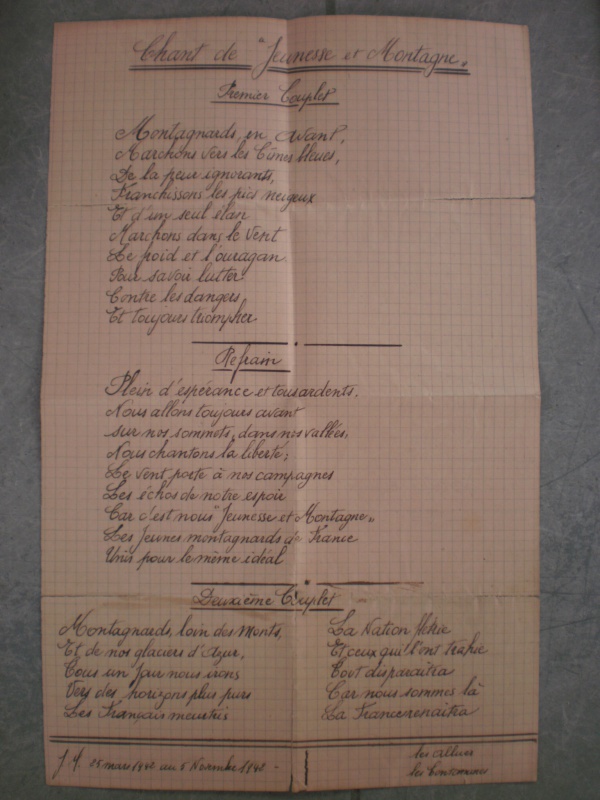 Chant de "Jeunesse et Montagne"
Premier Couplet
Montagnards, en avant,
Marchons vers les Cîmes bleues,
De la peur ignorants,
Franchissons les pics neigeux
Et d'un seul élan
Marchons dans le Vent
Le froid et l'ouragan
Pour savoir lutter
Contre les dangers,
Et toujours triompher.
Refrain
Plein d'espérance et tous ardents,
Nous allons toujours avant
sur nos sommets, dans nos vallées,
Nous chantons la liberté;
Le vent porte à nos campagnes
Les échos de notre espoir
Car c'est nous "Jeunesse et Montagne"
Les Jeunes montagnards de France
Unis pour le même idéal
Deuxième Couplet
Montagnards, loin des Monts,
Et de nos glaciers d'Azur,
Tous un Jour nous irons
Vers des horizons plus purs
Les Français meurtris
La Nation flétrie
Et ceux qui l'ont trahie
Tout disparaitra
Car nous sommes là
La France renaitra
25 mars 1942 au 5 Novembre 1942 -
les
les